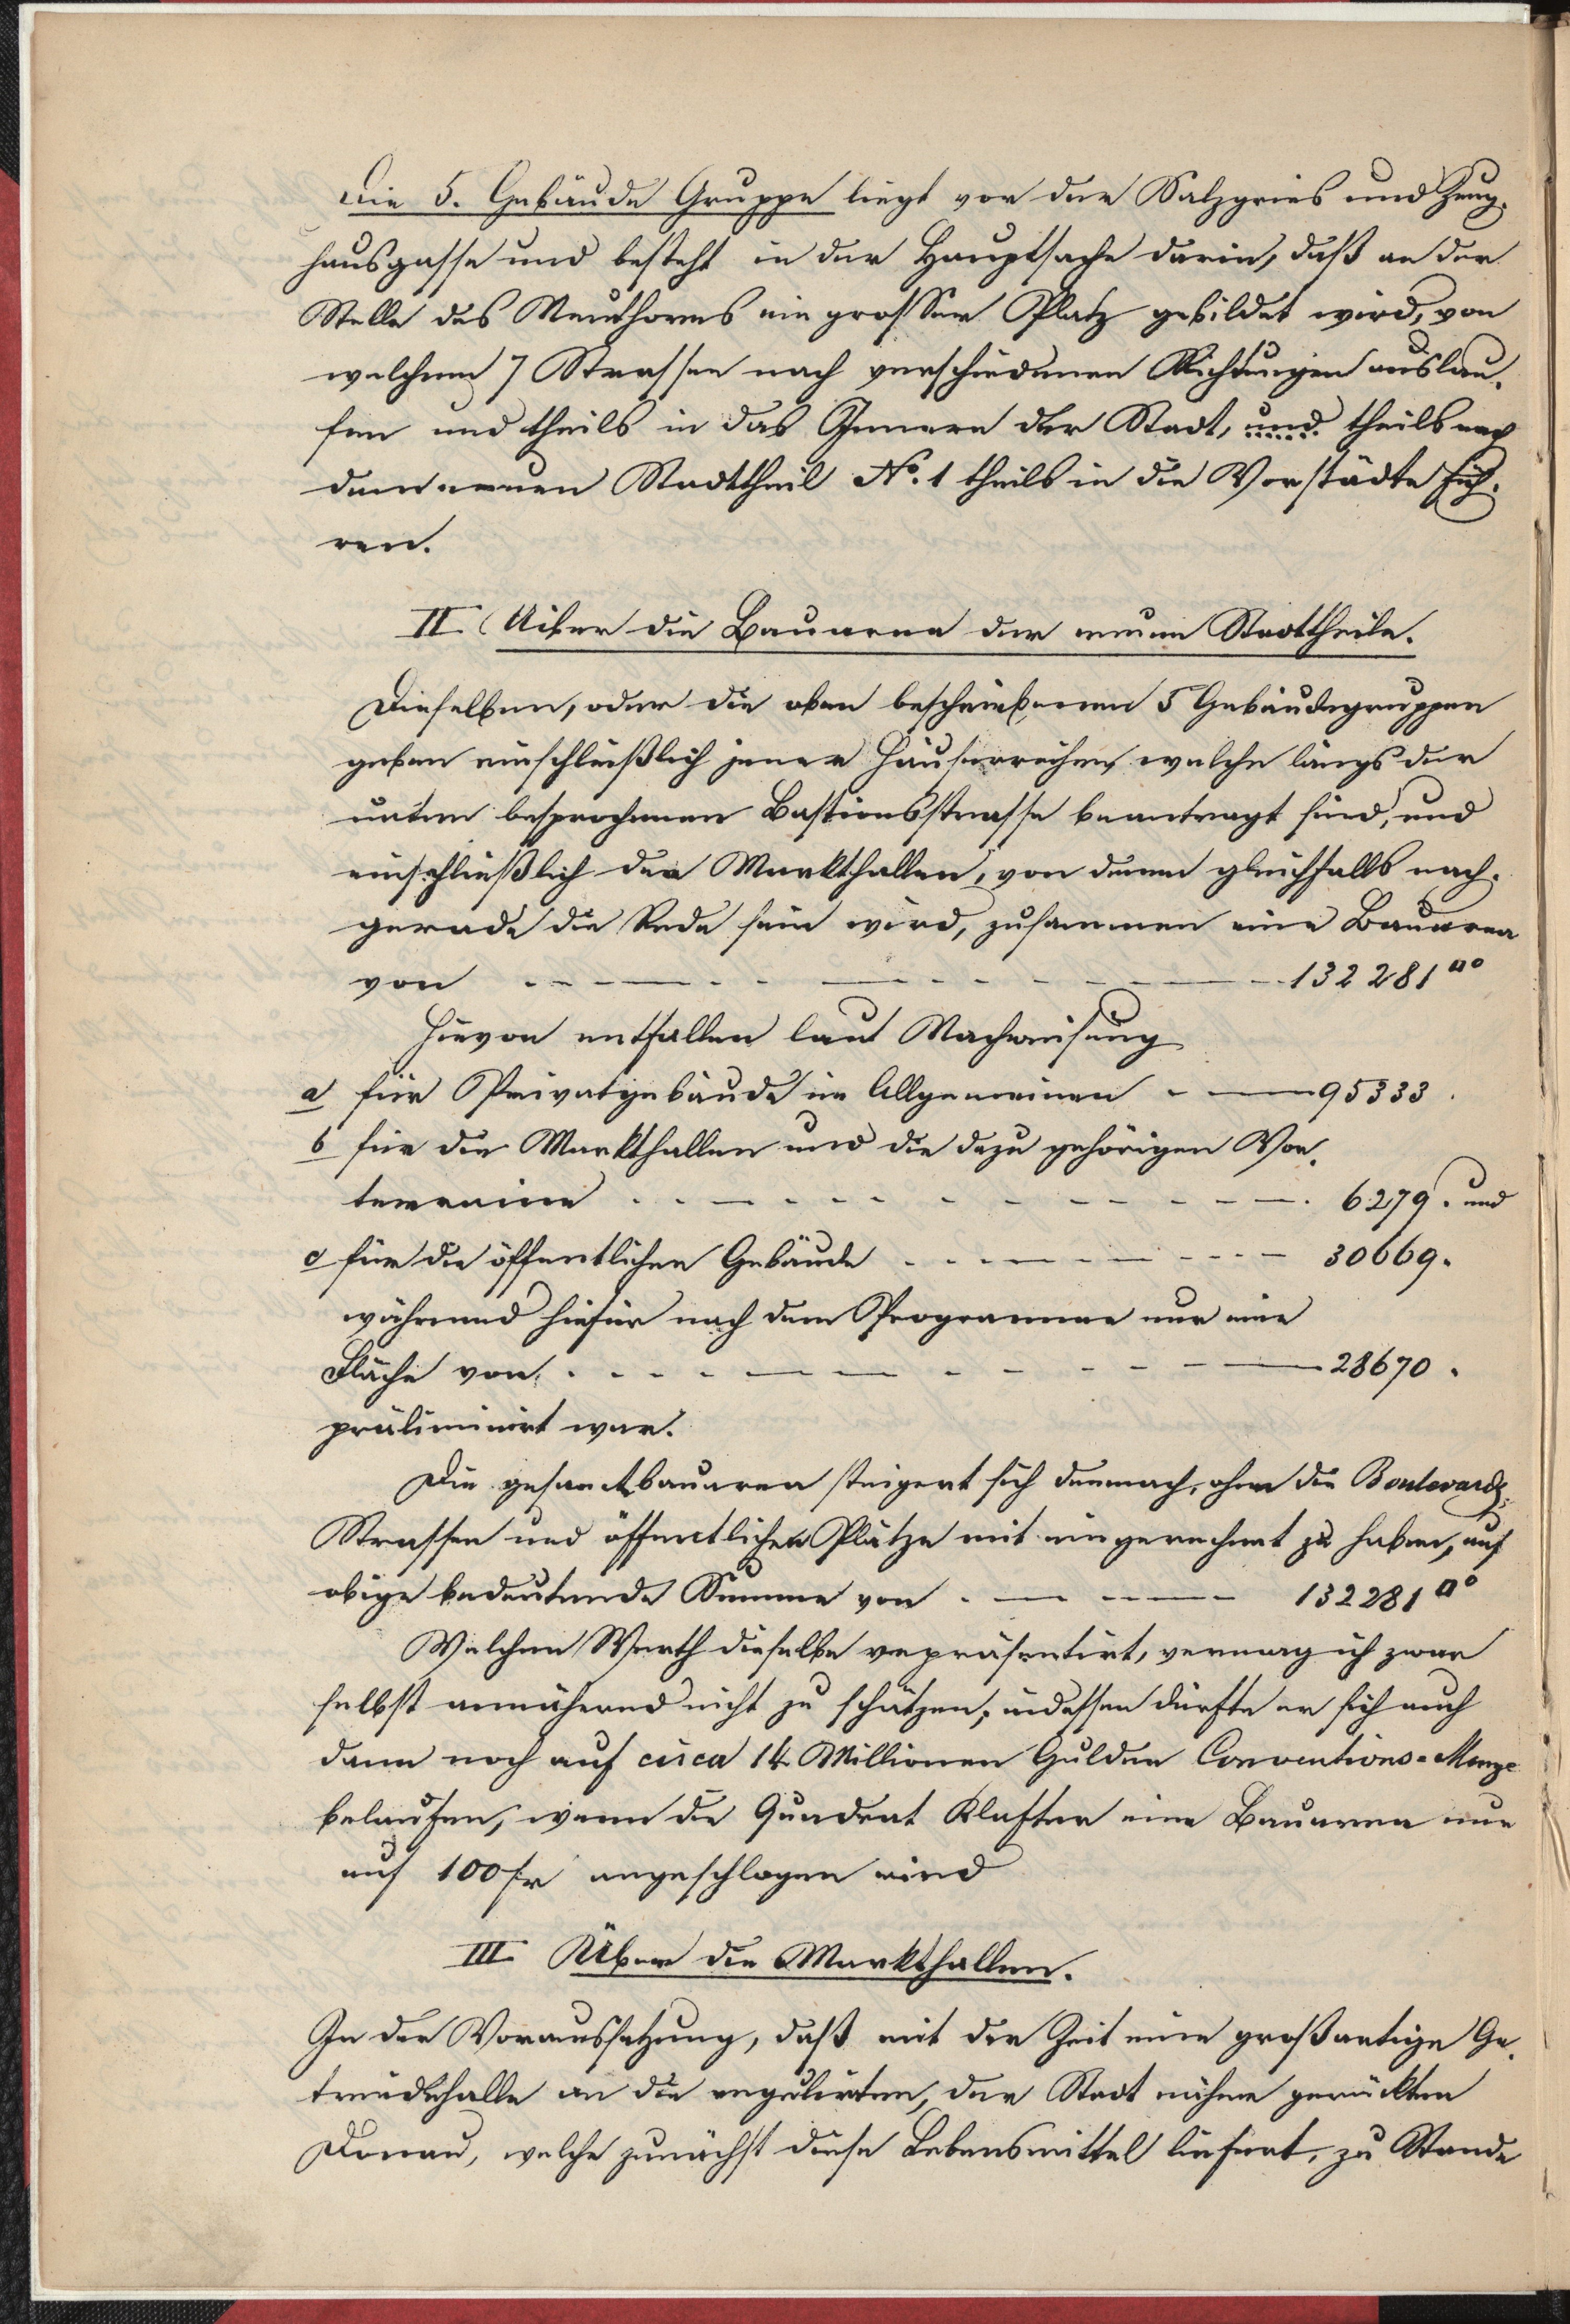 Die 5. Gebäude Gruppe liegt vor der Salzgries und Zeug-
hausgasse und besteht in der Hauptsache darin, daß an der
Stelle des Neuthores ein grosser Platz gebildet wird, von
welchem 7 Strassen nach verschiedenen Richtungen auslau-
fen und theils in das Innere der Stadt, und theils nach
dem neuen Stadttheil No. 1 theils in die Vorstädte füh-
ren.
II. Uiber die Bauarea der neuen Stadttheile.
Dieselben, oder die oben beschriebenen 5 Gebäudegruppen
geben einschließlich jener Häuserreihen, welche längs der
unten besprochenen Bastionsstrasse beantragt sind, und
einschließlich der Markthallen, von denen gleichfalls nach-
gerade die Rede sein wird, zusammen eine Bauarea
von 132281 □°
Hievon entfallen laut Nachweisung
a für Privatgebäude im Allgemeinen 95333.
b für die Markthallen und die dazu gehörigen Vor-
terraine 6279. und
c für die öffentlichen Gebäude 30669.
während hiefür nach dem Programme nur eine
Fläche von 28670.
präliminirt war.
Die gesamtbauarea steigert sich demnach, ohne die Boulevards,
Strassen und öffentlichen Plätze mit eingerechnet zu haben, auf
obige bedeutende Summe von 132281 □°
Welchen Werth dieselbe repräsentirt, vermag ich zwar
selbst annähernd nicht zu schätzen, indessen dürfte er sich auch
dann noch auf circa 14 Millionen Gulden Conventions-Menze
belaufen, wenn die Quadrat Klafter eine Bauarea nur
auf 100 fr angeschlagen wird
III. Über die Markthallen.
In der Voraussetzung, daß mit der Zeit eine großartige Ge-
treidehalle an die regulirten, der Stadt näher gerückten
Donau, welche zunächst diese Lebensmittel liefert, zu Stande